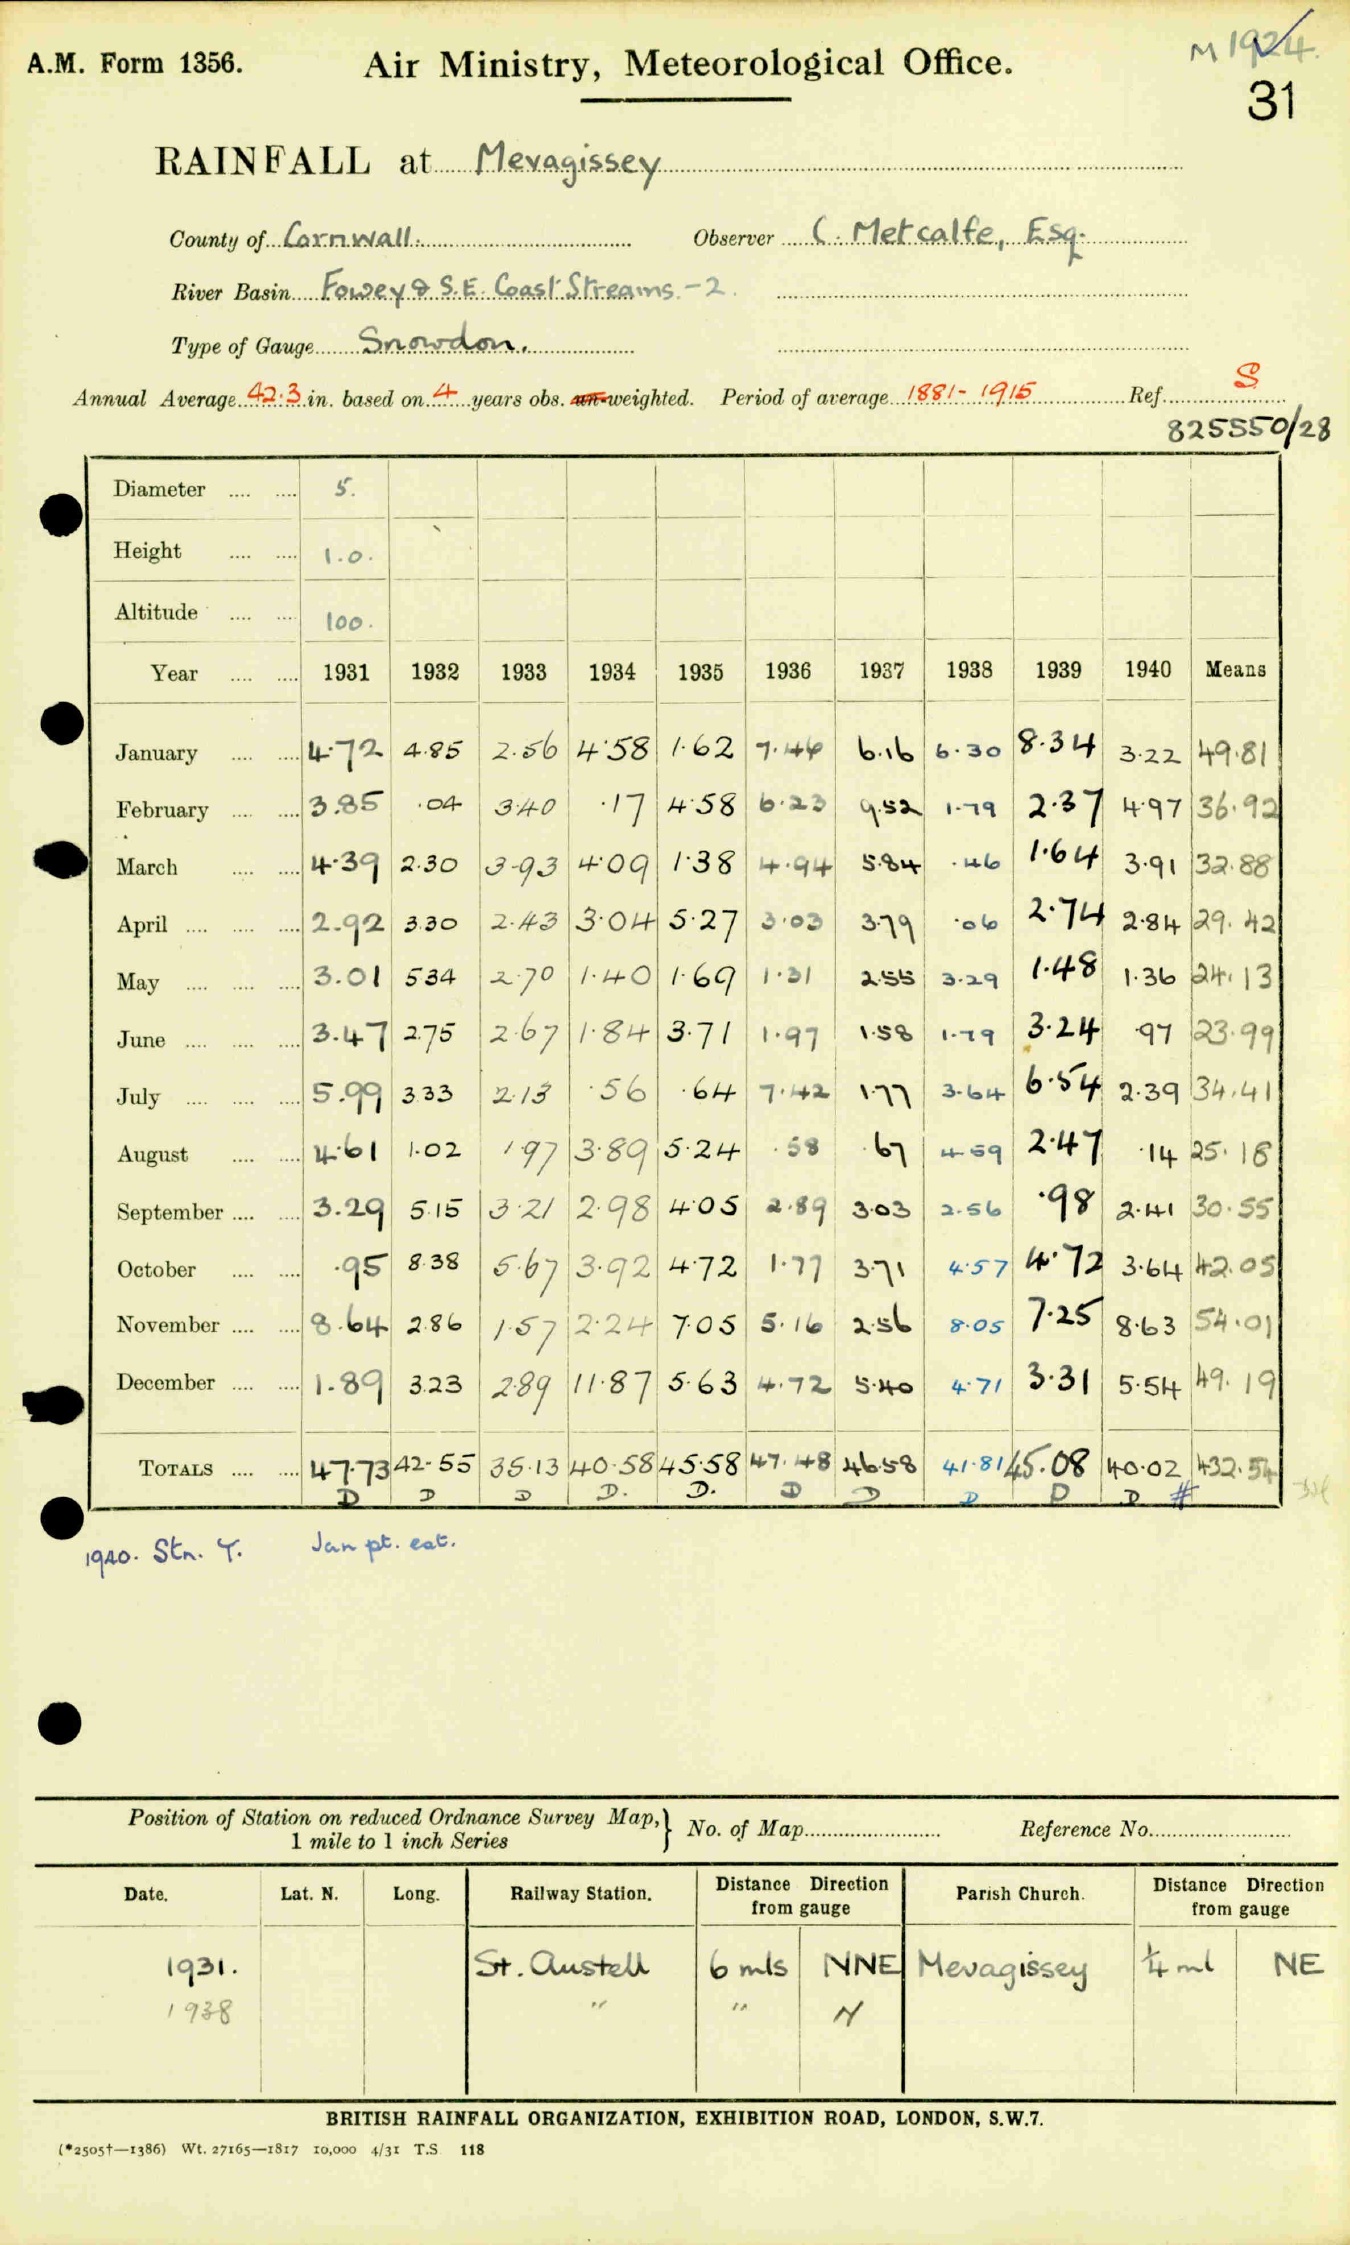 M 1924.
A.M. Form 1356. Air Ministry, Meteorological Office.
31
RAINFALL at Mevagissey
County of Cornwall. Observer C. Metcalfe, Esq.
River Basin Fowey & S.E. Coast Streams.-2.
Type of Gauge Snowdon.
Annual Average 42.3 in. based on 4 years obs. un-weighted. Period of average 1881-1915 Ref. S
825550/28
Diameter .... .... 5.
Height .... .... 1.0.
Altitude .... .... 100.
Year .... .... 1931 1932 1933 1934 1935 1936 1937 1938 1939 1940 Means
January .... .... 4.72 4.85 2.56 4.58 1.62 7.46 6.16 6.30 8.34 3.22 49.81
February .... .... 3.85 .04 3.40 .17 4.58 6.23 9.52 1.79 2.37 4.97 36.92
March .... .... 4.39 2.30 3.93 4.09 1.38 4.94 5.84 .46 1.64 3.91 32.88
April .... .... .... 2.92 3.30 2.43 3.04 5.27 3.03 3.79 .06 2.74 2.84 29.42
May .... .... .... 3.01 5.34 2.70 1.40 1.69 1.31 2.55 3.29 1.48 1.36 24.13
June .... .... .... 3.47 2.75 2.67 1.84 3.71 1.97 1.58 1.79 3.24 .97 23.99
July .... .... .... 5.99 3.33 2.13 .56 .64 7.42 1.77 3.64 6.54 2.39 34.41
August .... .... 4.61 1.02 1.97 3.89 5.24 .58 .67 4.59 2.47 .14 25.18
September .... .... 3.29 5.15 3.21 2.98 4.05 2.89 3.03 2.56 .98 2.41 30.55
October .... .... .95 8.38 5.67 3.92 4.72 1.77 3.71 4.57 4.72 3.64 42.05
November .... .... 8.64 2.86 1.57 2.24 7.05 5.16 2.56 8.05 7.25 8.63 54.01
December .... .... 1.89 3.23 2.89 11.87 5.63 4.72 5.40 4.71 3.31 5.54 49.19
TOTALS .... .... 47.73 42.55 35.13 40.58 45.58 47.48 46.58 41.81 45.08 40.02 432.54
D D D D. D. D D D D D #
1940. Stn. T. Jan pt. est.
Position of Station on reduced Ordnance Survey Map,} No. of Map Reference No.
1 mile to 1 inch Series
Date. Lat. N. Long. Railway Station. Distance Direction from gauge Parish Church. Distance Direction from gauge
1931. St. Austell 6 mls NNE Mevagissey 1/4 ml NE
1938 " " N
BRITISH RAINFALL ORGANIZATION, EXHIBITION ROAD, LONDON, S.W.7.
(*2505†—1386) Wt. 27165—1817 10,000 4/31 T.S. 118